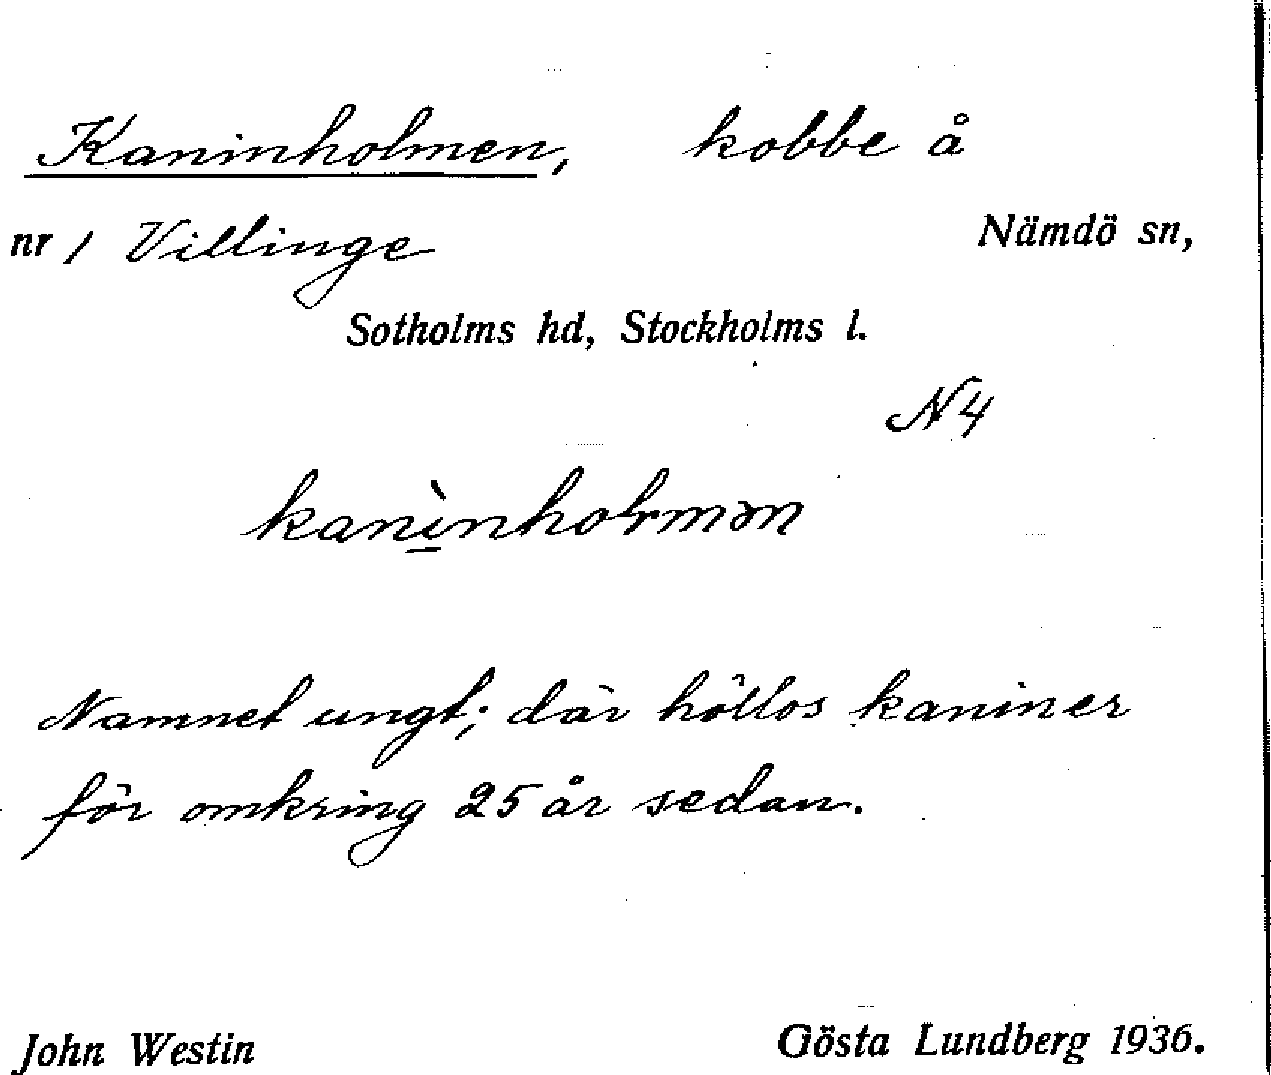 Kaninholmen, kobbe å
nr 1 Villinge Nämdö sn,
Sotholms hd, Stockholms l.
N4
kanìnholmən
Namnet ungt; där höllos kaniner
för omkring 25 år sedan.
John Westin Gösta Lundberg 1936.